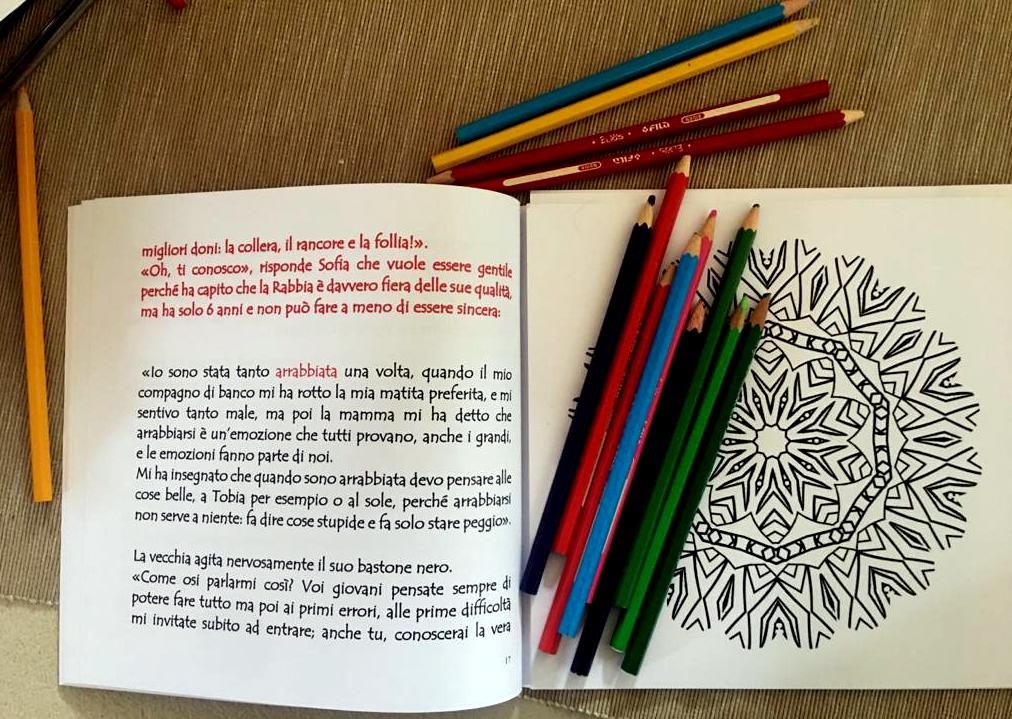 migliori doni: la collera, il rancore e la follia!».
«Oh, ti conosco», risponde Sofia che vuole essere gentile
perché ha capito che la Rabbia è davvero fiera delle sue qualità,
ma ha solo 6 anni e non può fare a meno di essere sincera:
«Io sono stata tanto arrabbiata una volta, quando il mio
compagno di banco mi ha rotto la mia matita preferita, e mi
sentivo tanto male, ma poi la mamma mi ha detto che
arrabbiarsi è un'emozione che tutti provano, anche i grandi,
e le emozioni fanno parte di noi.
Mi ha insegnato che quando sono arrabbiata devo pensare alle
cose belle, a Tobia per esempio o al sole, perché arrabbiarsi
non serve a niente: fa dire cose stupide e fa solo stare peggio».
La vecchia agita nervosamente il suo bastone nero.
«Come osi parlarmi così? Voi giovani pensate sempre di
potere fare tutto ma poi ai primi errori, alle prime difficoltà
mi invitate subito ad entrare; anche tu, conoscerai la vera
17
FILA
FILA